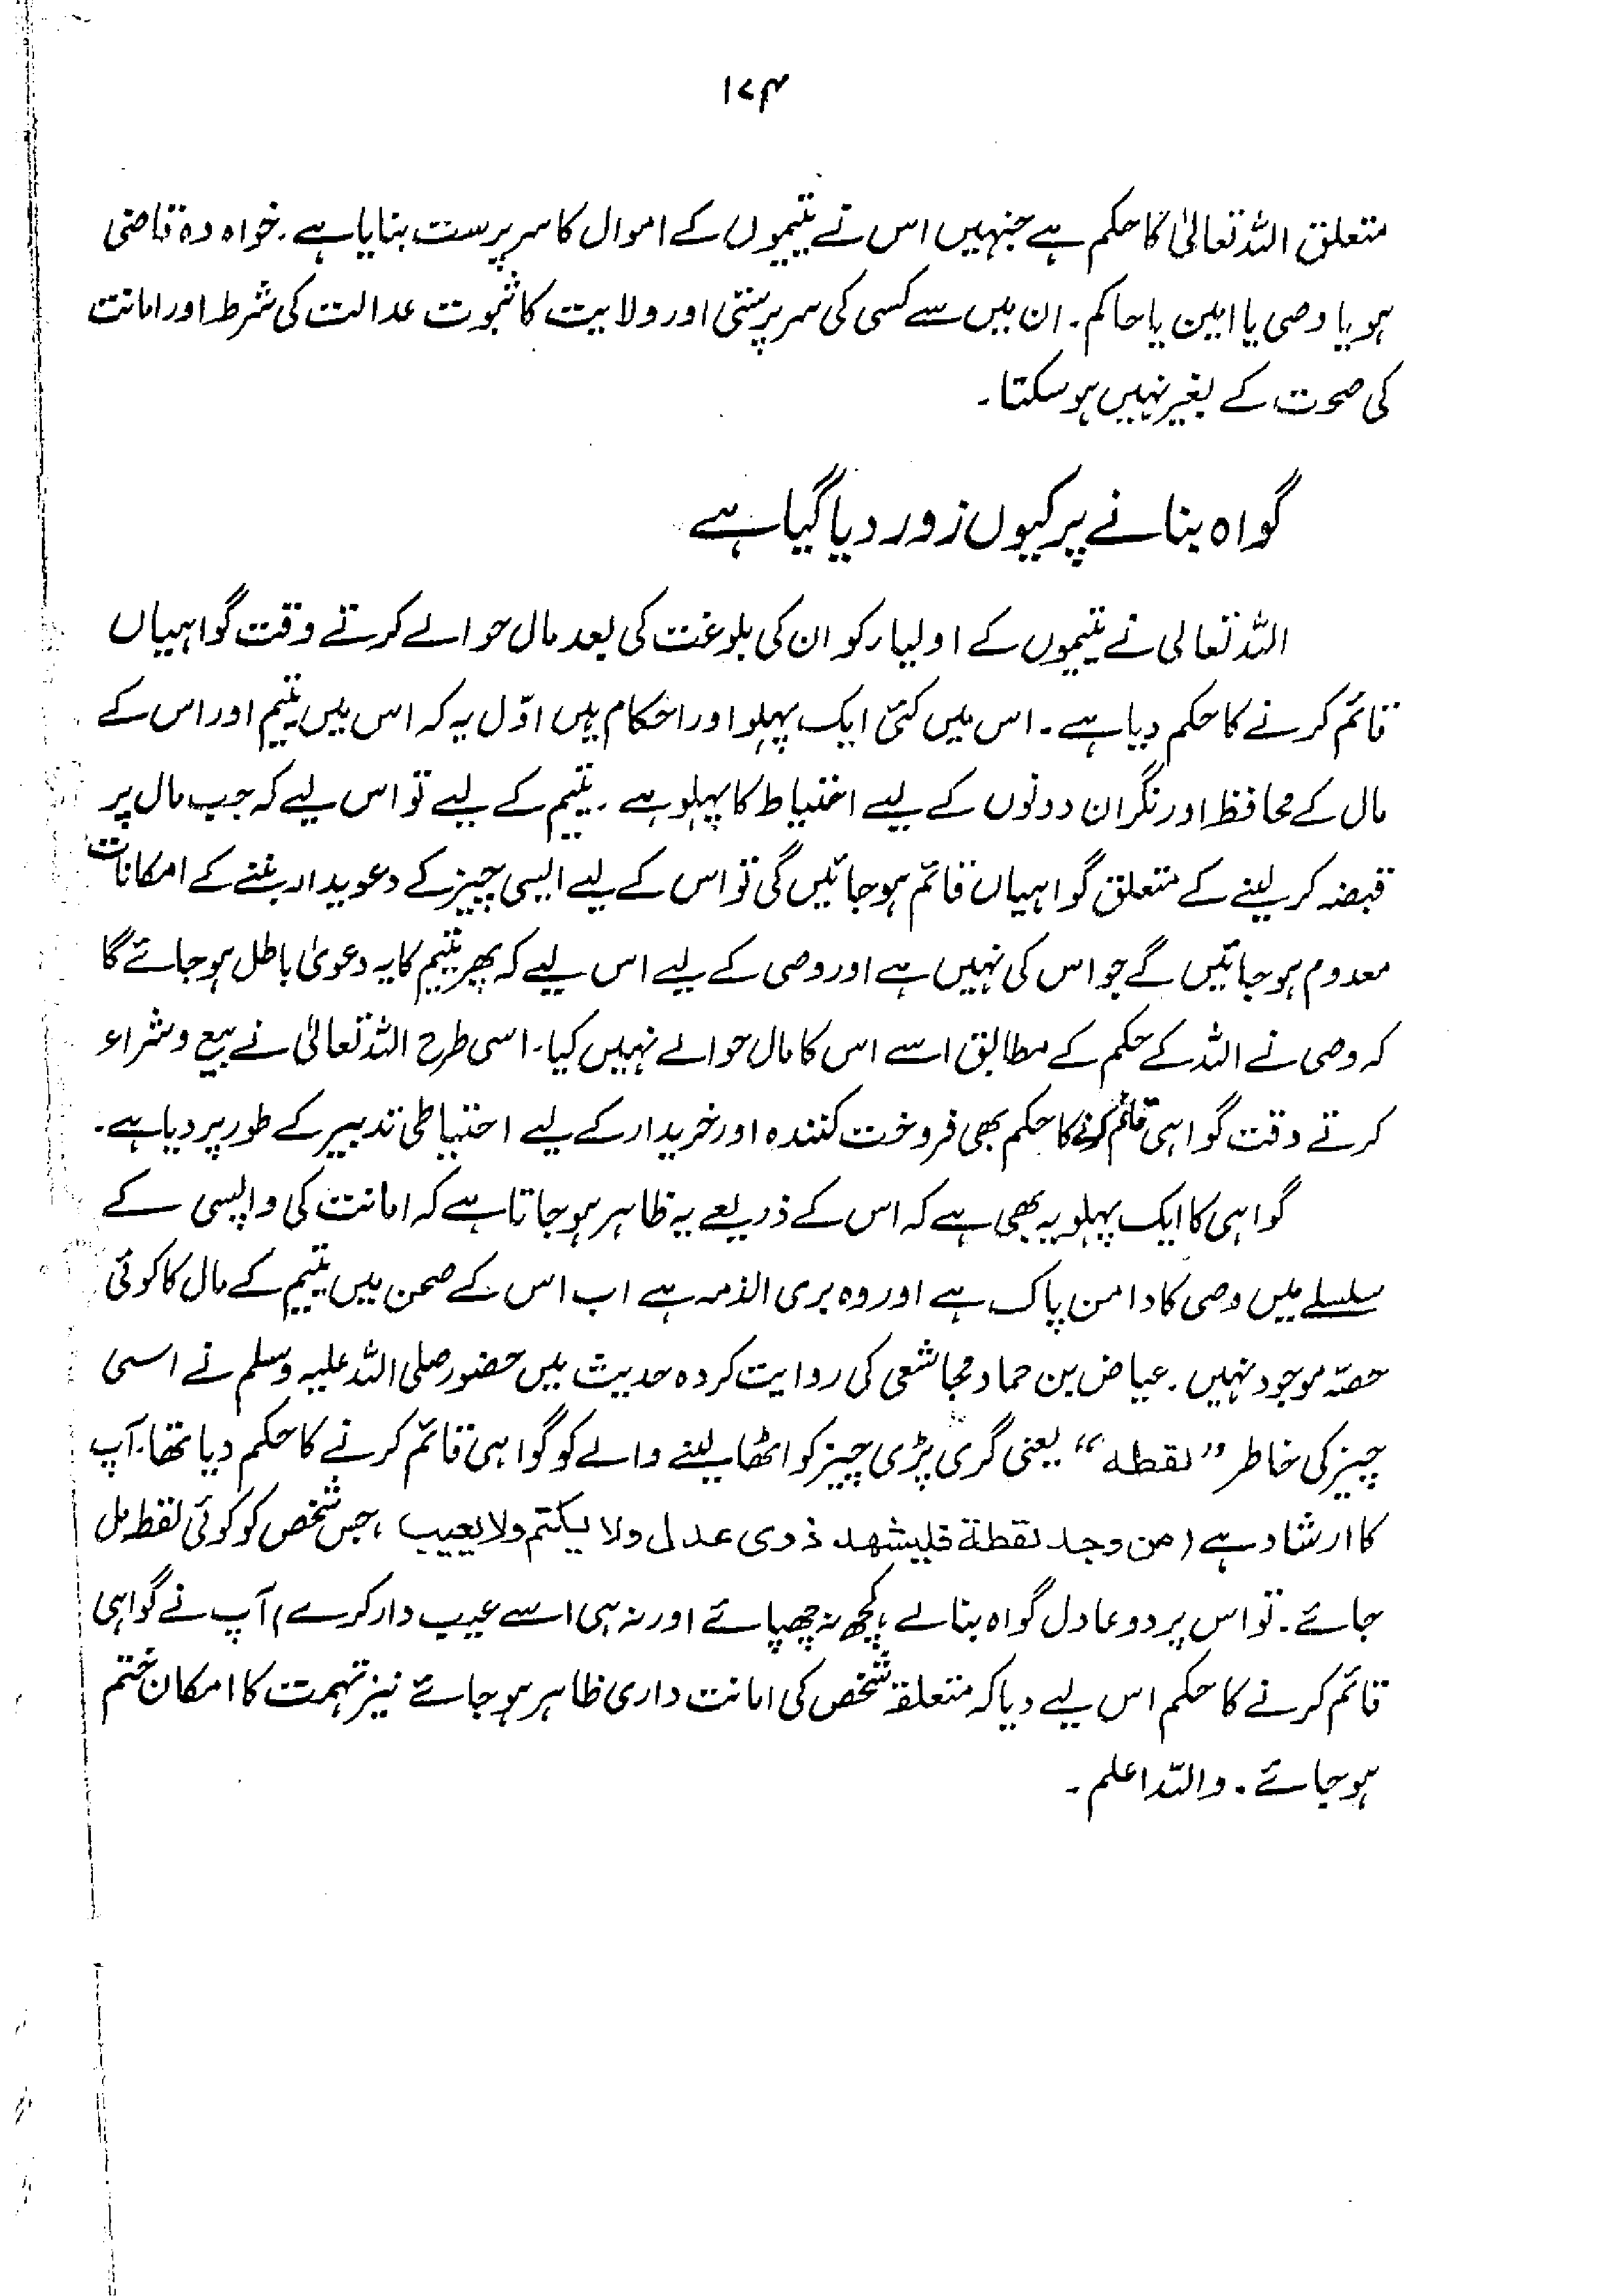 ۱۷۴
متعلق اللہ تعالیٰ کا حکم ہے جنہیں اس نے یتیموں کے اموال کا سرپرست بنایا ہے۔ خواہ وہ قاضی
ہو یا وصی یا امین یا حاکم۔ ان میں سے کسی کی سرپرستی اور ولایت کا ثبوت عدالت کی شرط اور امانت
کی صحت کے بغیر نہیں ہو سکتا۔
گواہ بنانے پر کیوں زور دیا گیا ہے
اللہ تعالی نے یتیموں کے اولیار کو ان کی بلوغت کی بعد مال حوالے کرتے وقت گواہیاں
قائم کرنے کا حکم دیا ہے۔ اس میں کئی ایک پہلو اور احکام ہیں اوّل یہ کہ اس میں یتیم اور اس کے
مال کے محافظ اور نگران دونوں کے لیے احتیاط کا پہلو ہے۔ یتیم کے لیے تو اس لیے کہ جب مال پر
قبضہ کر لینے کے متعلق گواہیاں قائم ہو جائیں گی تو اس کے لیے ایسی چیز کے دعویدار بننے کے امکانات
معدوم ہو جائیں گے جو اس کی نہیں ہے اور وصی کے لیے اس لیے کہ پھر یتیم کا یہ دعویٰ باطل ہو جائے گا
کہ وصی نے اللہ کے حکم کے مطابق اسے اس کا مال حوالے نہیں کیا۔ اسی طرح اللہ تعالیٰ نے بیع و شراء
کرتے وقت گواہی قائم کرنے کا حکم بھی فروخت کنندہ اور خریدار کے لیے احتیاطی تدبیر کے طور پر دیا ہے۔
گواہی کا ایک پہلو یہ بھی ہے کہ اس کے ذریعے یہ ظاہر ہو جاتا ہے کہ امانت کی واپسی کے
سلسلے میں وصی کا دامن پاک ہے اور وہ بری الذمہ ہے اب اس کے صحن میں یتیم کے مال کا کوئی
حصّہ موجود نہیں۔ عیاض بن حماد مجاشعی کی روایت کردہ حدیث میں حضور صلی اللہ علیہ وسلم نے اسی
چیز کی خاطر ”لقطہ“ یعنی گری پڑی چیز کو اٹھا لینے والے کو گواہی قائم کرنے کا حکم دیا تھا۔ آپ
کا ارشاد ہے (من وجد لقطة فليشهد ذوى عدل ولا يكتم ولا يعيب، جس شخص کو کوئی لقطہ مل
جائے۔ تو اس پر دو عادل گواہ بنا لے، کچھ نہ چھپائے اور نہ ہی اسے عیب دار کرے) آپ نے گواہی
قائم کرنے کا حکم اس لیے دیا کہ متعلقہ شخص کی امانت داری ظاہر ہو جائے نیز تہمت کا امکان ختم
ہو جائے۔ واللہ اعلم۔